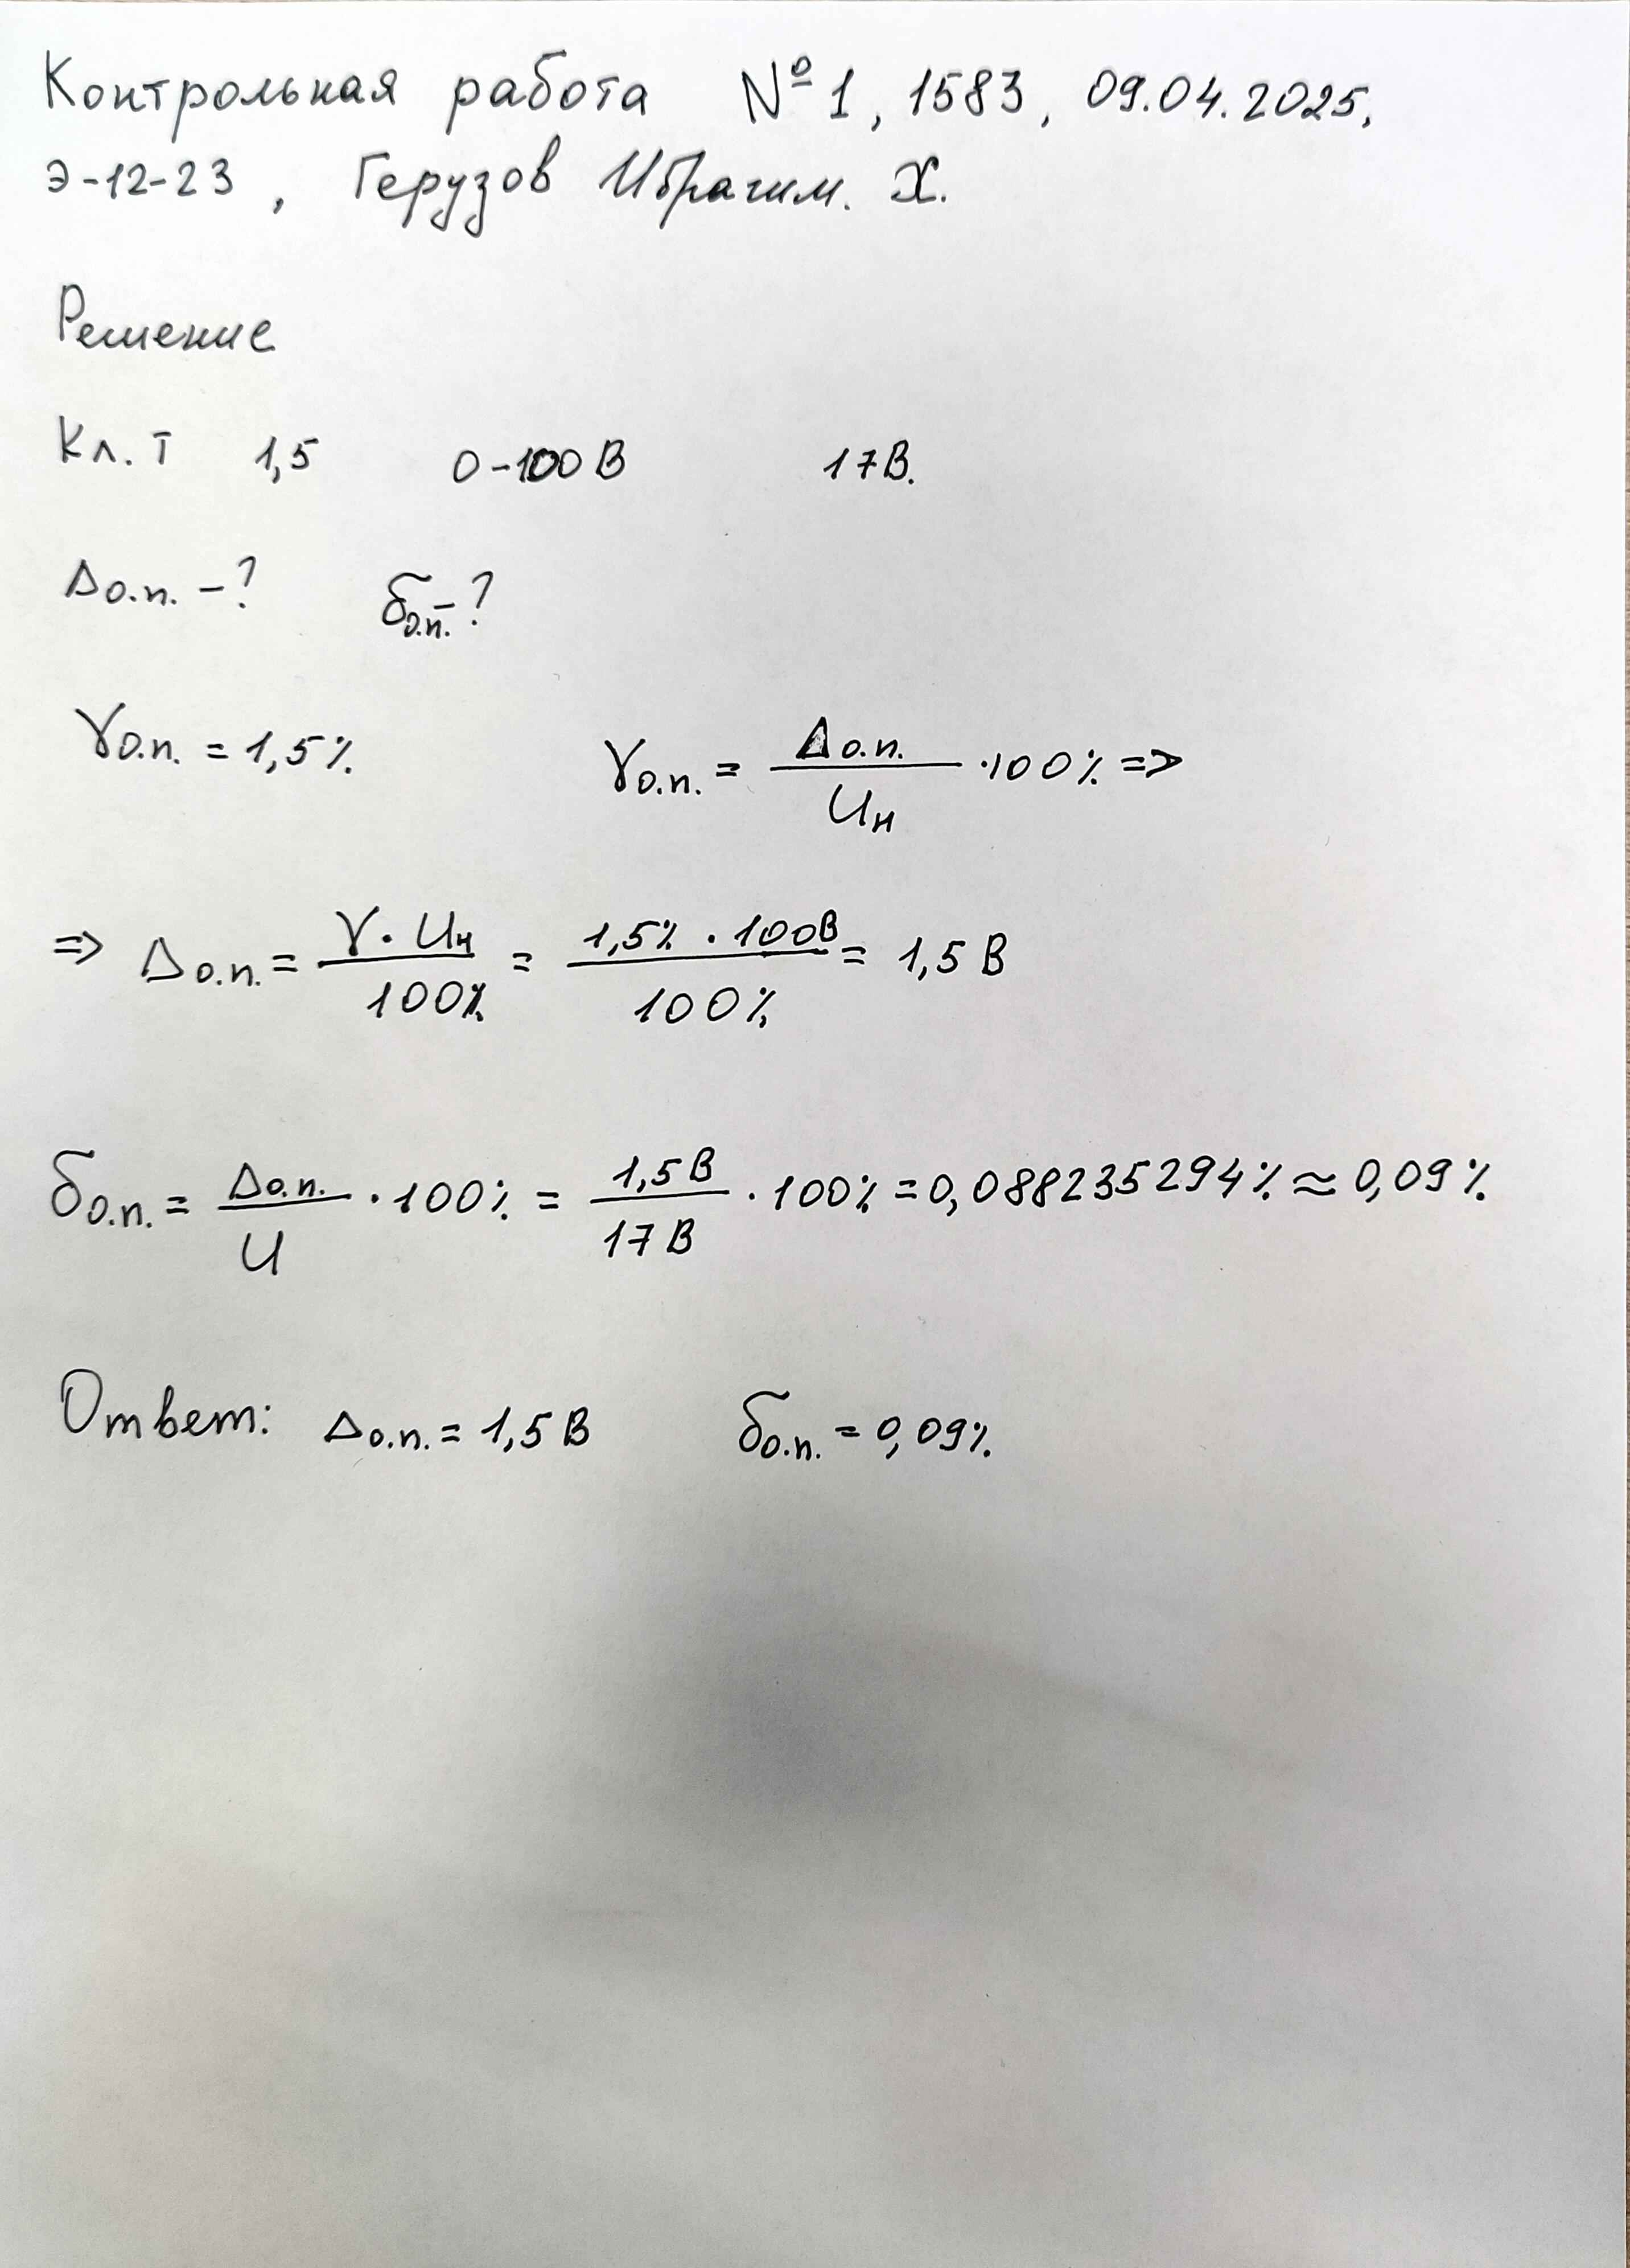 Контрольная работа №1, 1583, 09.04.2025,
Э-12-23, Герузов Ибрагим. Х.
Решение
Кл. т 1,5 0-100 В 17 В.
Δо.п. - ? δо.п. - ?
γо.п. = 1,5% γо.п. = Δо.п. / Uн · 100% =>
=> Δо.п. = γ · Uн / 100% = 1,5% · 100В / 100% = 1,5 В
δо.п. = Δо.п. / U · 100% = 1,5 В / 17 В · 100% = 0,088235294% ≈ 0,09%
Ответ: Δо.п. = 1,5 В δо.п. = 0,09%